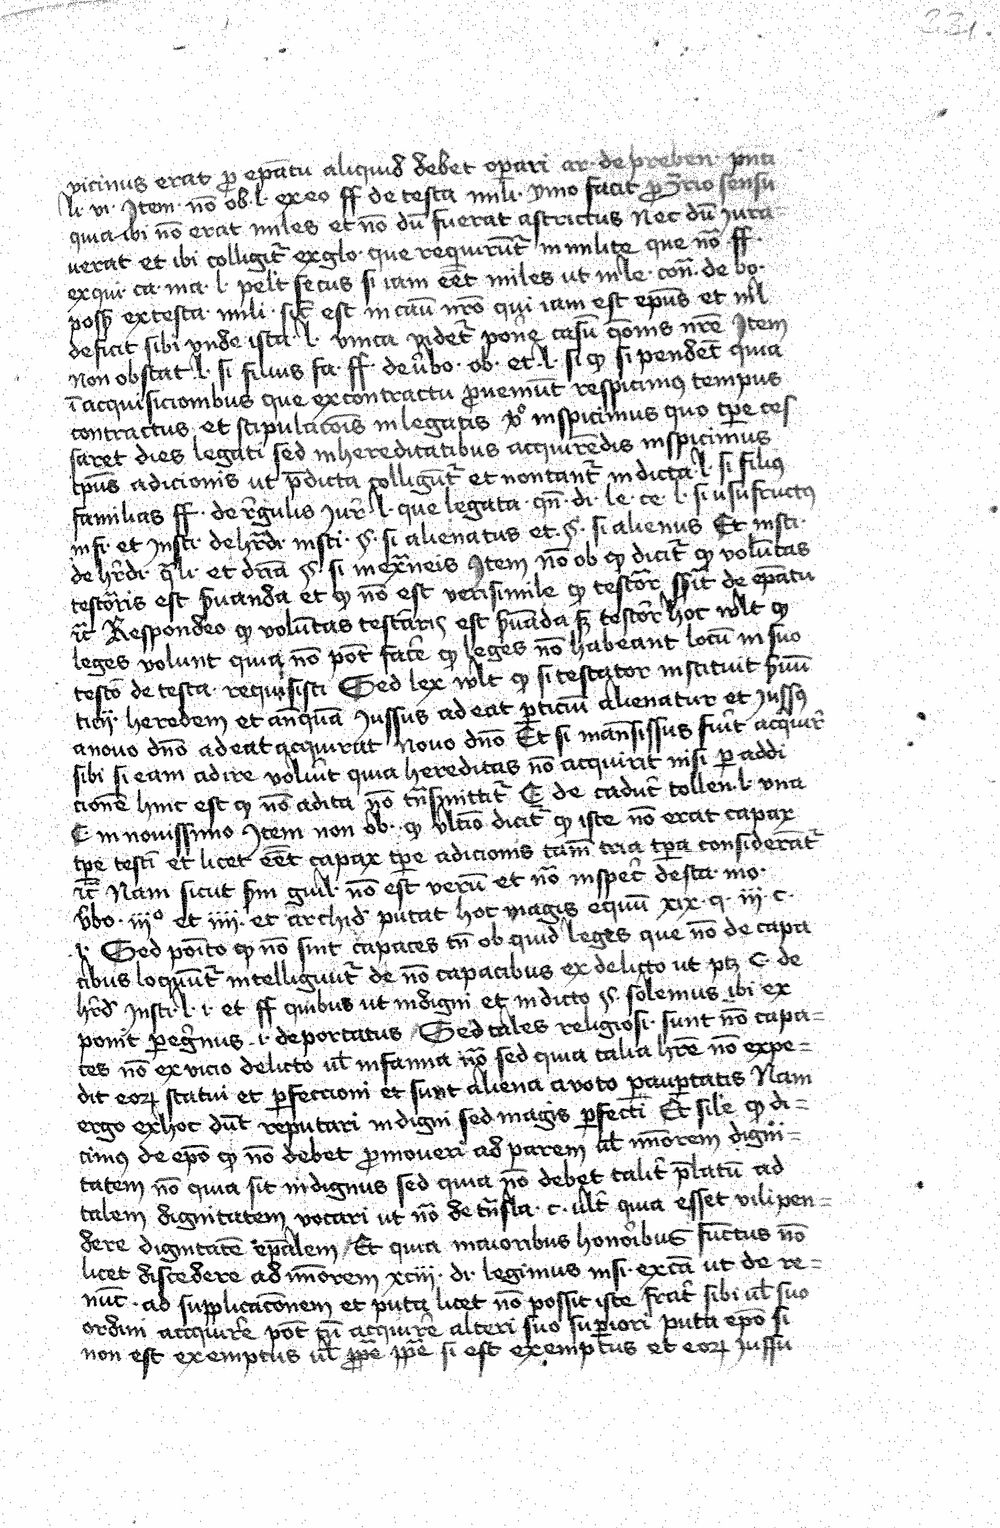 231.
vicinus erat p epatu aliquid debet opari ar. de preben. pnta
li. vi. Item. no ob. l. ex eo ff de testa mili. ymo facit prio sensu
quia ibi no erat miles et no du fuerat astrictus nec du jura=
uerat et ibi colligit ex glo. que requirunt in milite que no ff.
ex qui. ca. ma. l. pelt secus si iam eet miles ut in le. con. de bo.
poss ex testa. mili. sic est in cau nro qui iam est epus et nl
deficit sibi unde ista. l. vnica videt pone casu qonis nre Item
non obstat. l. si filius fa. ff. de ubo. ob. et. l. si qp si pendet quia
i acquisicionibus que ex contractu pueniut respicimus tempus
contractus et stipulacois in legatis vo inspicimus quo tpe ces
saret dies legati sed in hereditatibus acquirendis inspicimus
tpus adicionis ut pdicta colligunt et nontant in dicta. l. si filius
familias ff. de regulis jur. l. que legata. qn. di. le. ce. l. si usufructus
infi. et insti. de hrdi. insti. §. si alienatus et. §. si alienus Et insti.
de hrdi. qli. et dria §. si in exneis Item no ob qp dicit qp voluntas
testoris est seruanda et qp no est verisimile qp testor sensit de epatu
ic Respondeo qp voluntas testoris est seruanda sz testor hoc wlt qp
leges volunt quia no pot facere qp leges no habeant locu in suo
testo de testa. requisisti Sed lex wlt qp si testator instituit seruu
ticij. heredem et anqua jussus adeat pticiu alienatur et jussus
a nouo dno adeat acquirat novo dno Et si manusissus fuit acquir
sibi si eam adire voluit quia hereditas no acquirit nisi p addi
cione hinc est qp no adita no tnsmittit C de caduc tollen. l. vna
C in nouissimo Item non ob. qp vltio dicit qp iste no erat capax
tpe testi et licet eet capax tpe adicionis tam tria tpa considerat
ic Nam sicut sm guil. no est veru et no inspec de sta. mo.
vbo. iiio et iiii. et archid putat hoc magis equu xix. q. iii. c.
i. Sed poito qp no sint capaces tn ob quid leges que no de capa
cibus loquunt intelligunt de no capacibus ex delicto ut ptz C. de
hrd insti. l. i. et ff quibus ut indigni et in dicto §. solemus ibi ex
ponit pegnus. i. deportatus Sed tales religiosi. sunt no capa=
ces no ex vicio delicto ul infamia no sed quia talia hre no expe=
dit eor statui et pfeccioni et sunt aliena a voto paupertatis Nam
ergo ex hoc dnt reputari indigni sed magis pfecti Et sile qp di=
cimus de epo qp no debet pmoueri ad parem ul minorem digni=
tatem no quia sit indignus sed quia no debet talit platu ad
talem dignitatem vocari ut no de tnsla. c. ult quia esset vilipen=
dere dignitate epalem Et quia maioribus honoribus functus no
licet discedere ad minorem xciii. di. legimus insi. exca ut de re=
nuc. ad supplicaconem et puta licet no possit iste frat sibi ul suo
ordini acquire pot tn acquire alteri suo supiori puta epo si
non est exemptus ul ppe ppe si est exemptus et eor jussu